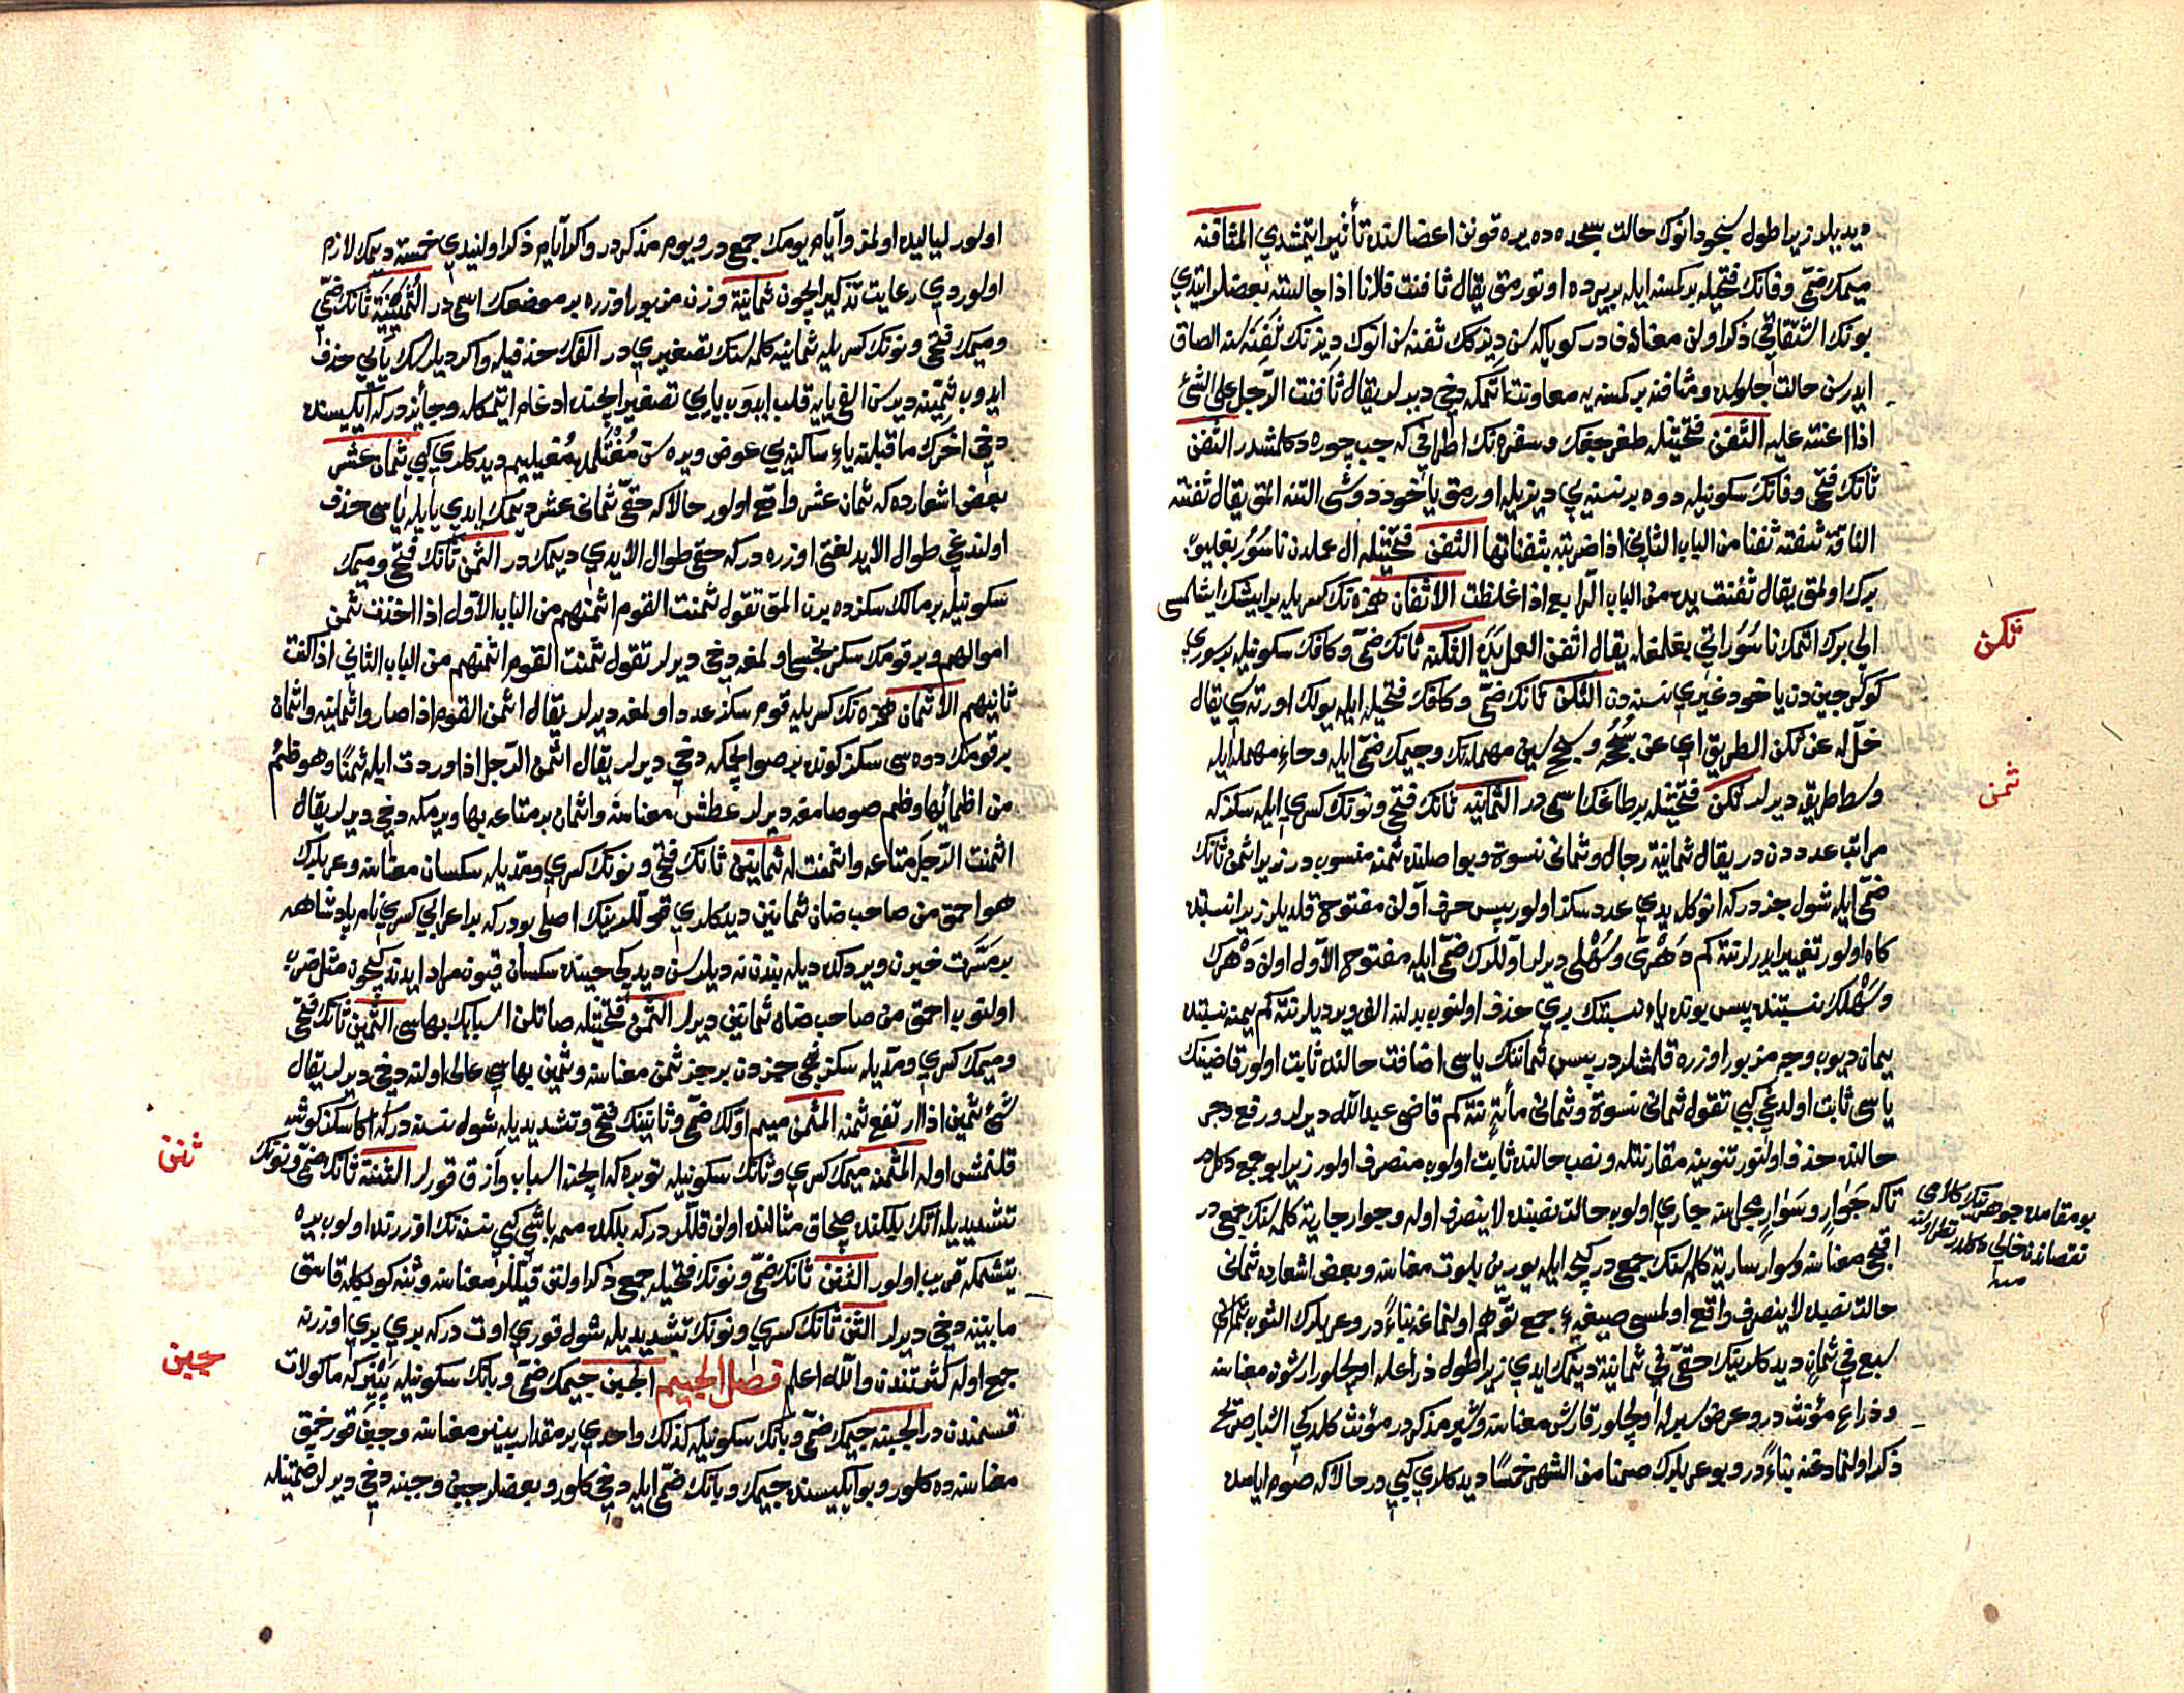 ديديلر زيرا طول سجود انوك حالت سجده ده يره قونن اعضالرنده تأثير ايتمشدي المثافنه
ميمك ضمّي وفانك فتحيله بر كمسنه ايله بر يرده اوتورمق يقال ثافنت فلانا اذا جالسته بعضلر ايتدي
بونك اشتقاقي ذكر اولنن معنادندر كويا كه سن ديزكك ثفنه سن انوك ديزنك ثفنه سنه الصاق
ايدرسن حالت جلوسده ومثافنه بر كمسنه يه معاونت اتمكه دخي ديرلر يقال ثافنت الرّجل على الشّئ
اذا اعنته عليه الثّفن فتحتيله طغرجغك وسفره نك اطرافي كه جب چوره دكلمشدر الثّفن
ثانك فتحي وفانك سكونيله دوه بر نسنه يي ديزيله اورمق ياخود دوشي التنه المق يقال ثفنته
الناقة تثفنه ثفنا من الباب الثاني اذا ضربته بثفناتها الثفن فتحتيله ال عملدن ناسور بغليوب
برك اولمق يقال ثفنت يده من الباب الرّابع اذا غلظت الاثفان همزه نك كسريله بر ايشك ايشلمسي
الي برك اتمك ناسوراني بغلمغله يقال اثفن العمل يده الثكنه ثانك ضمّي وكافك سكونيله بر سوري
كوكرجيندن ياخود غيري نسنه دن الثّكن ثانك ضمّي وكافك فتحيله ايله يولك اورته سي يقال
خلّ له عن ثكن الطريق اي عن سُجُحه وسجح سين مهمله نك وجيمك ضمّي ايله وحاء مهمله ايله
وسط طريقه ديرلر ثكن فتحتيله بر طاغك اسمي در الثّمانيه ثانك فتحي ونونك كسري ايله سكز كه
مراتب عدددن در يقال ثمانية رجال وثماني نسوة وبو اصلنده ثمنه منسوب در زيرا ثمن ثانك
ضمّي ايله شول جزدر كه انوكله يدي عدد سكز اولور پس حرف اوّلن مفتوح قلديلر زيرا نسبتده
كاه اولور تغيير ايدرلر نته كم دُهريّ وسُهلي ديرلر اوّللرك ضمّي ايله مفتوح الاوّل اولن دَهرك
وسَهلك نسبتنده پس بونده ياء نسبتك بري حذف اولنوب بدلنه الف ويرديلر نته كم يمنه نسبتده
يمان ديوب وجه مزبور اوزره قلمشلردر پس ثمانينك ياسي اضافت حالنده ثابت اولور قاضينك
ياسي ثابت اولدغي كبي تقول ثماني نسوة وثماني مأة نته كم قاضي عبدالله ديرلر ورفع وجر
حالنده حذف اولنور تنوينه مقارنتله ونصب حالنده ثابت اولوب منصرف اولور زيرا بو جمع دكلدر
تا كه جَوَارٍ وسَوَارٍ مجراسنه جاري اولوب حالت نصبنده لاينصرف اوله وجوار جارية كلمه سنك جمعي در
اقجي معناسنه وسوار سارية كلمه سنك جمعي در كيجه ايله يورين بلوت معناسنه وبعض اشعارده ثماني
حالت نصبده لاينصرف واقع اولمسي صيغهء جمع توهم اولنماغه بناءً در وعربلرك الثوب ثماني
سبع في ثمانٍ ديدكلرينك حقّي في ثمانية ديمك ايدي زيرا طول ذراعله اولچيلور ارشون معناسنه
وذراع مؤنث در وعرض شبرله اولچيلور قارش معناسنه وشبر مذكر در مؤنث كلدكي اشبار صرّيح
ذكر اولنمادغنه بناءً در وبو عربلرك صمنا من الشهر خمسًا ديدكلري كبي در حالا كه صوم ايامده
ثكن
ثمن
بو مقامده جوهرينك كلامي
نقصاندن خالي دكلدر نظر اولنه
منه
اولور لياليده اولمز وأيام يومك جمعي در ويوم مذكر در واكر أيام ذكر اولنيدي خمسة ديمك لازم
اولوردي رعايت تذكير ايچون ثمانية وزن مزبور اوزره بر موضعك اسمي در الثُّمَيْنِيَة ثانك ضمّي
وميمك فتحي ونونك كسريله ثمانيه كلمه سنك تصغيري در الفك حذفيله واكر ديلرسك يائي حذف
ايدوب ثميّنه ديرسن الفي يايه قلب ايدوب ياري تصغير ايچنده ادغام ايتمكله وجائز در كه ايكيسنده
دخي اخرك ماقبلنه ياء ساكنه يي عوض ويره سن مُغَيْلِمده مُغيليم ديدكلري كبي ثمان عشر
بعض اشعارده كه ثمان عشر واقع اولور حالا كه حقّي ثماني عشر ديمك ايدي يا ايله ياسي حذف
اولندغي طوال الأيد لغتي اوزره در كه حقي طوال الأيدي ديمك در الثّمن ثانك فتحي وميمك
سكونيله بر مالك سكزده برن المق تقول ثمنت القوم اثمنهم من الباب الاوّل اذا اخذت ثمن
اموالهم وبر قومك سكزنجيسي اولمغه دخي ديرلر تقول ثمنت القوم اثمنهم من الباب الثاني اذا كنت
ثامنهم الاثمان همزه نك كسريله قوم سكز عدد اولمغه ديرلر يقال اثمن القوم اذا صاروا ثمانية واثمان
بر قومك دوه سي سكز كونده بر صو ايچمكه دخي ديرلر يقال اثمن الرّجل اذا وردت ابله ثمنًا وهو ظمئ
من اظمائها وظمء صوصامغه ديرلر عطش معناسنه واثمان بر متاعه بها ويرمكه دخي ديرلر يقال
اثمنت الرّجل متاعه واثمنت له ثمانين ثانك فتحي ونونك كسري ومدّيله سكسان معناسنه وعربلرك
هو احمق من صاحب ضان ثمانين ديدكلري قوللرينك اصلي بودر كه بر اعرابي كسري نام پادشاهه
بر مسرّت خبرن ويردكده ديله بندن نه ديلرسن ديدكي حينده سكسان قيون مراد ايدندكيچون مثل ضرب
اولنوب احمق من صاحب ضان ثمانين ديرلر الثّمن فتحتيله صاتلن اسبابك بهاسي الثّمين ثانك فتحي
وميمك كسري ومدّيله سكزنجي جزدن بر جز ثمن معناسنه وثمين بهاسي عالي اولنه دخي ديرلر يقال
شئ ثمين اذا ارتفع ثمنه المثمّن ميم اوّلك ضمّي وثانينك فتحي وتشديديله شول نسنه در كه اكا سكز كوشه
قلنمش اوله المثمنه ميمك كسري وثانك سكونيله توبره كه ايچنه اسباب وآزق قورلر الثنّة ثانك ضمّي ونونك
تشديديله اتك بيلكنده طرناق مثالنده اولن قللردر كه بلكده ممه باشي كبي نسنه نك اوزرنده اولوب يره
يتشمكه قريب اولور الثّنن ثانك ضمّي ونونك فتحيله جمع ذكر اولنن قيللر معناسنه وثنّه كوبكله قاسق
مابينه دخي ديرلر الثّن ثانك كسري ونونك تشديديله شول قوري اوت در كه بري بري اوزرنه
جمع اوله كثرتندن والله اعلم فصل الجيم الجبن جيمك ضمّي وبانك سكونيله پينير كه ماكولات
قسمندن در الجبنه جيمك ضمّي وبانك سكونيله كذلك واحدي بر مقدار پينير معناسنه وجبن قورخمق
معناسنه ده كلور وبو ايكيسنده جيمك وبانك ضمّي ايله دخي كلور وبعضلر جبن وجبنه دخي ديرلر ضمّتيله
ثنن
جبن